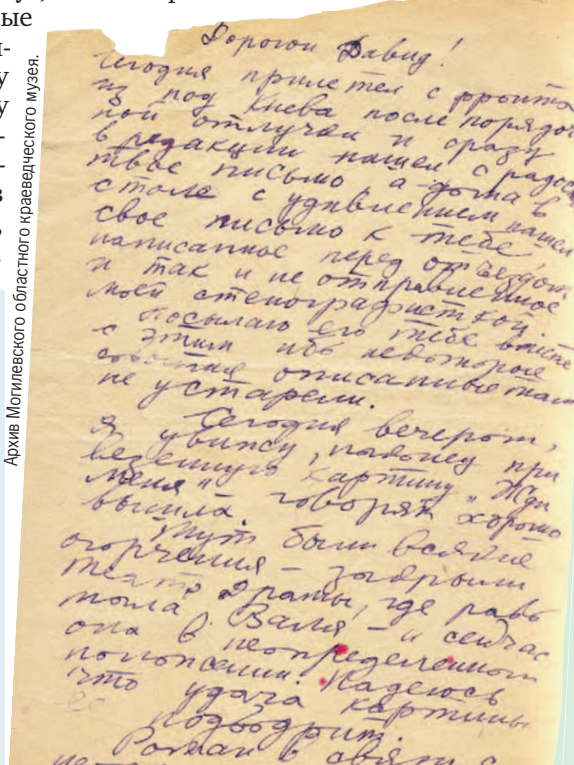 ые
у
у
-
-
в
Архив Могилевского областного краеведческого музея.
Дорогой Давид!
Сегодня прилетел с фронта
из под Киева после порядоч
ной отлучки и сразу
в редакции нашел с радос
твое письмо а дома в
столе с удивлением нашел
свое письмо к тебе
написанное перед отъездом
и так и не отправленное
моей стенографисткой.
Посылаю его тебе вместе
с этим ибо некоторые
события описанные там
не устарели.
Сегодня вечером,
я увижу, наконец при
везенную картину „Жди
меня" говорят хорошо
вышла.
Тут были всякие
огорчения – закрыли
театр Драмы, где рабо
тала Валя – и сейчас
она в неопределенном
положении. Надеюсь
что удача картины
ее подбодрит.
Роман в связи с